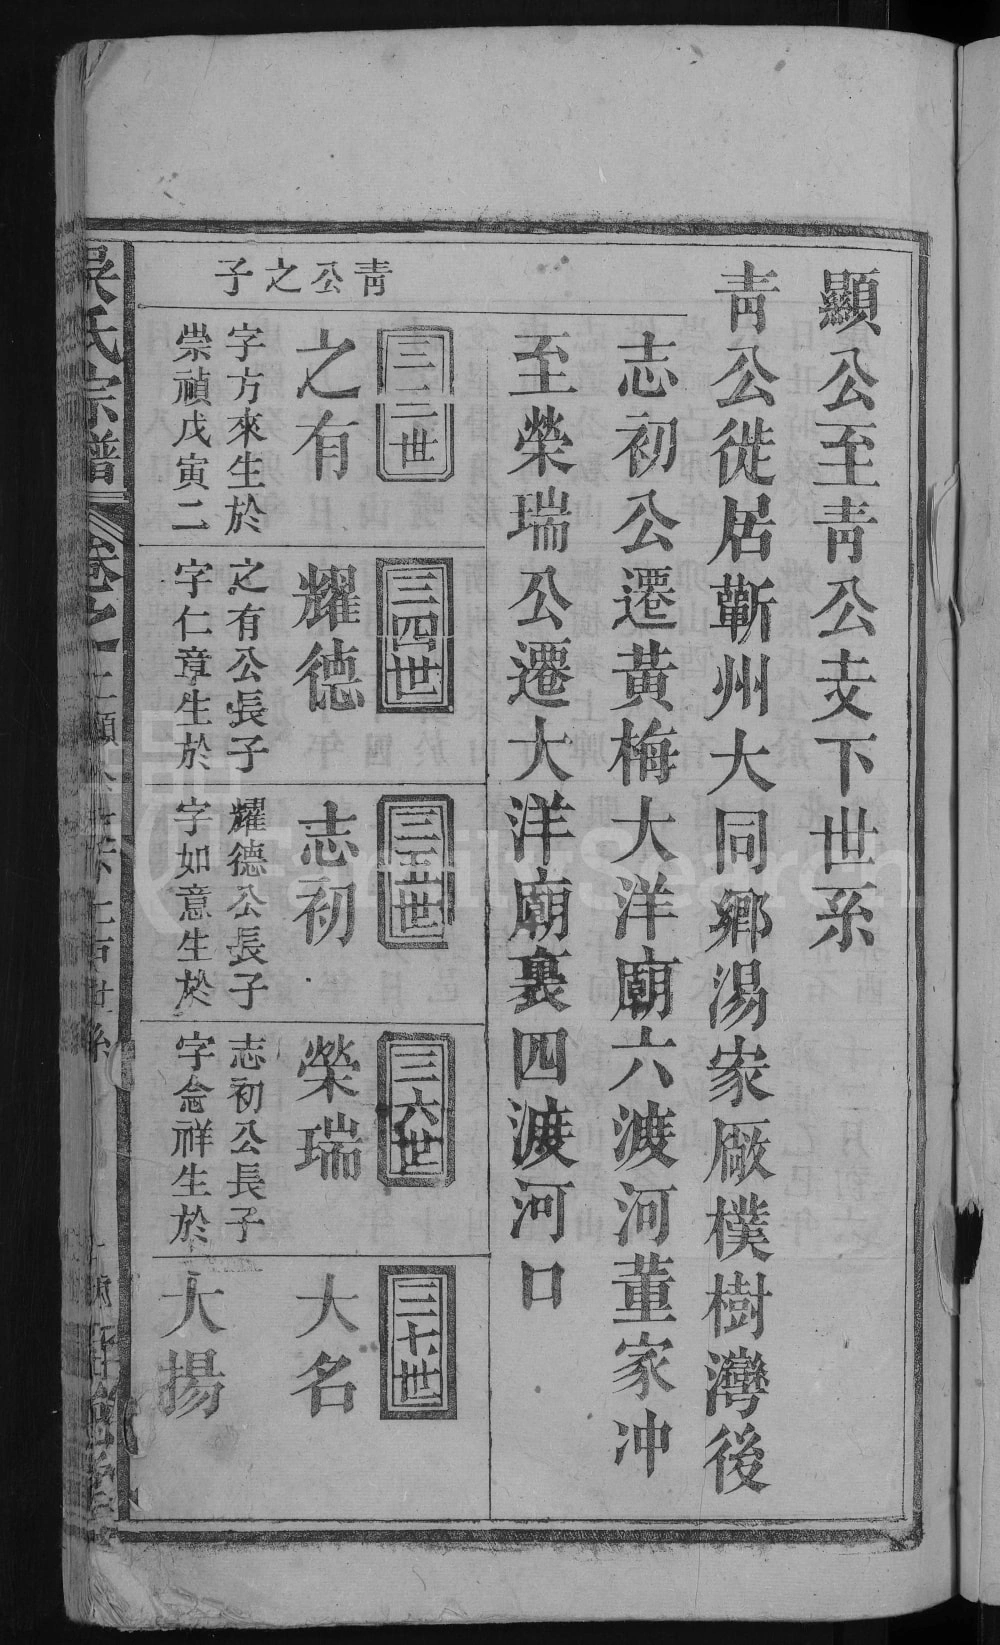 顯公至靑公支下世系
靑公徙居蘄州大同鄉湯家廠樸樹灣後
志初公遷黃梅大洋廟六渡河董家冲
至榮瑞公遷大洋廟裏四渡河口
靑公之子
三三世
之有
字方來生於
崇禎戊寅二
三四世
耀德
之有公長子
字仁章生於
三五世
志初
耀德公長子
字如意生於
三六世
榮瑞
志初公長子
字念祥生於
三七世
大名
大揚
吳氏宗譜
卷之
FamilySearch